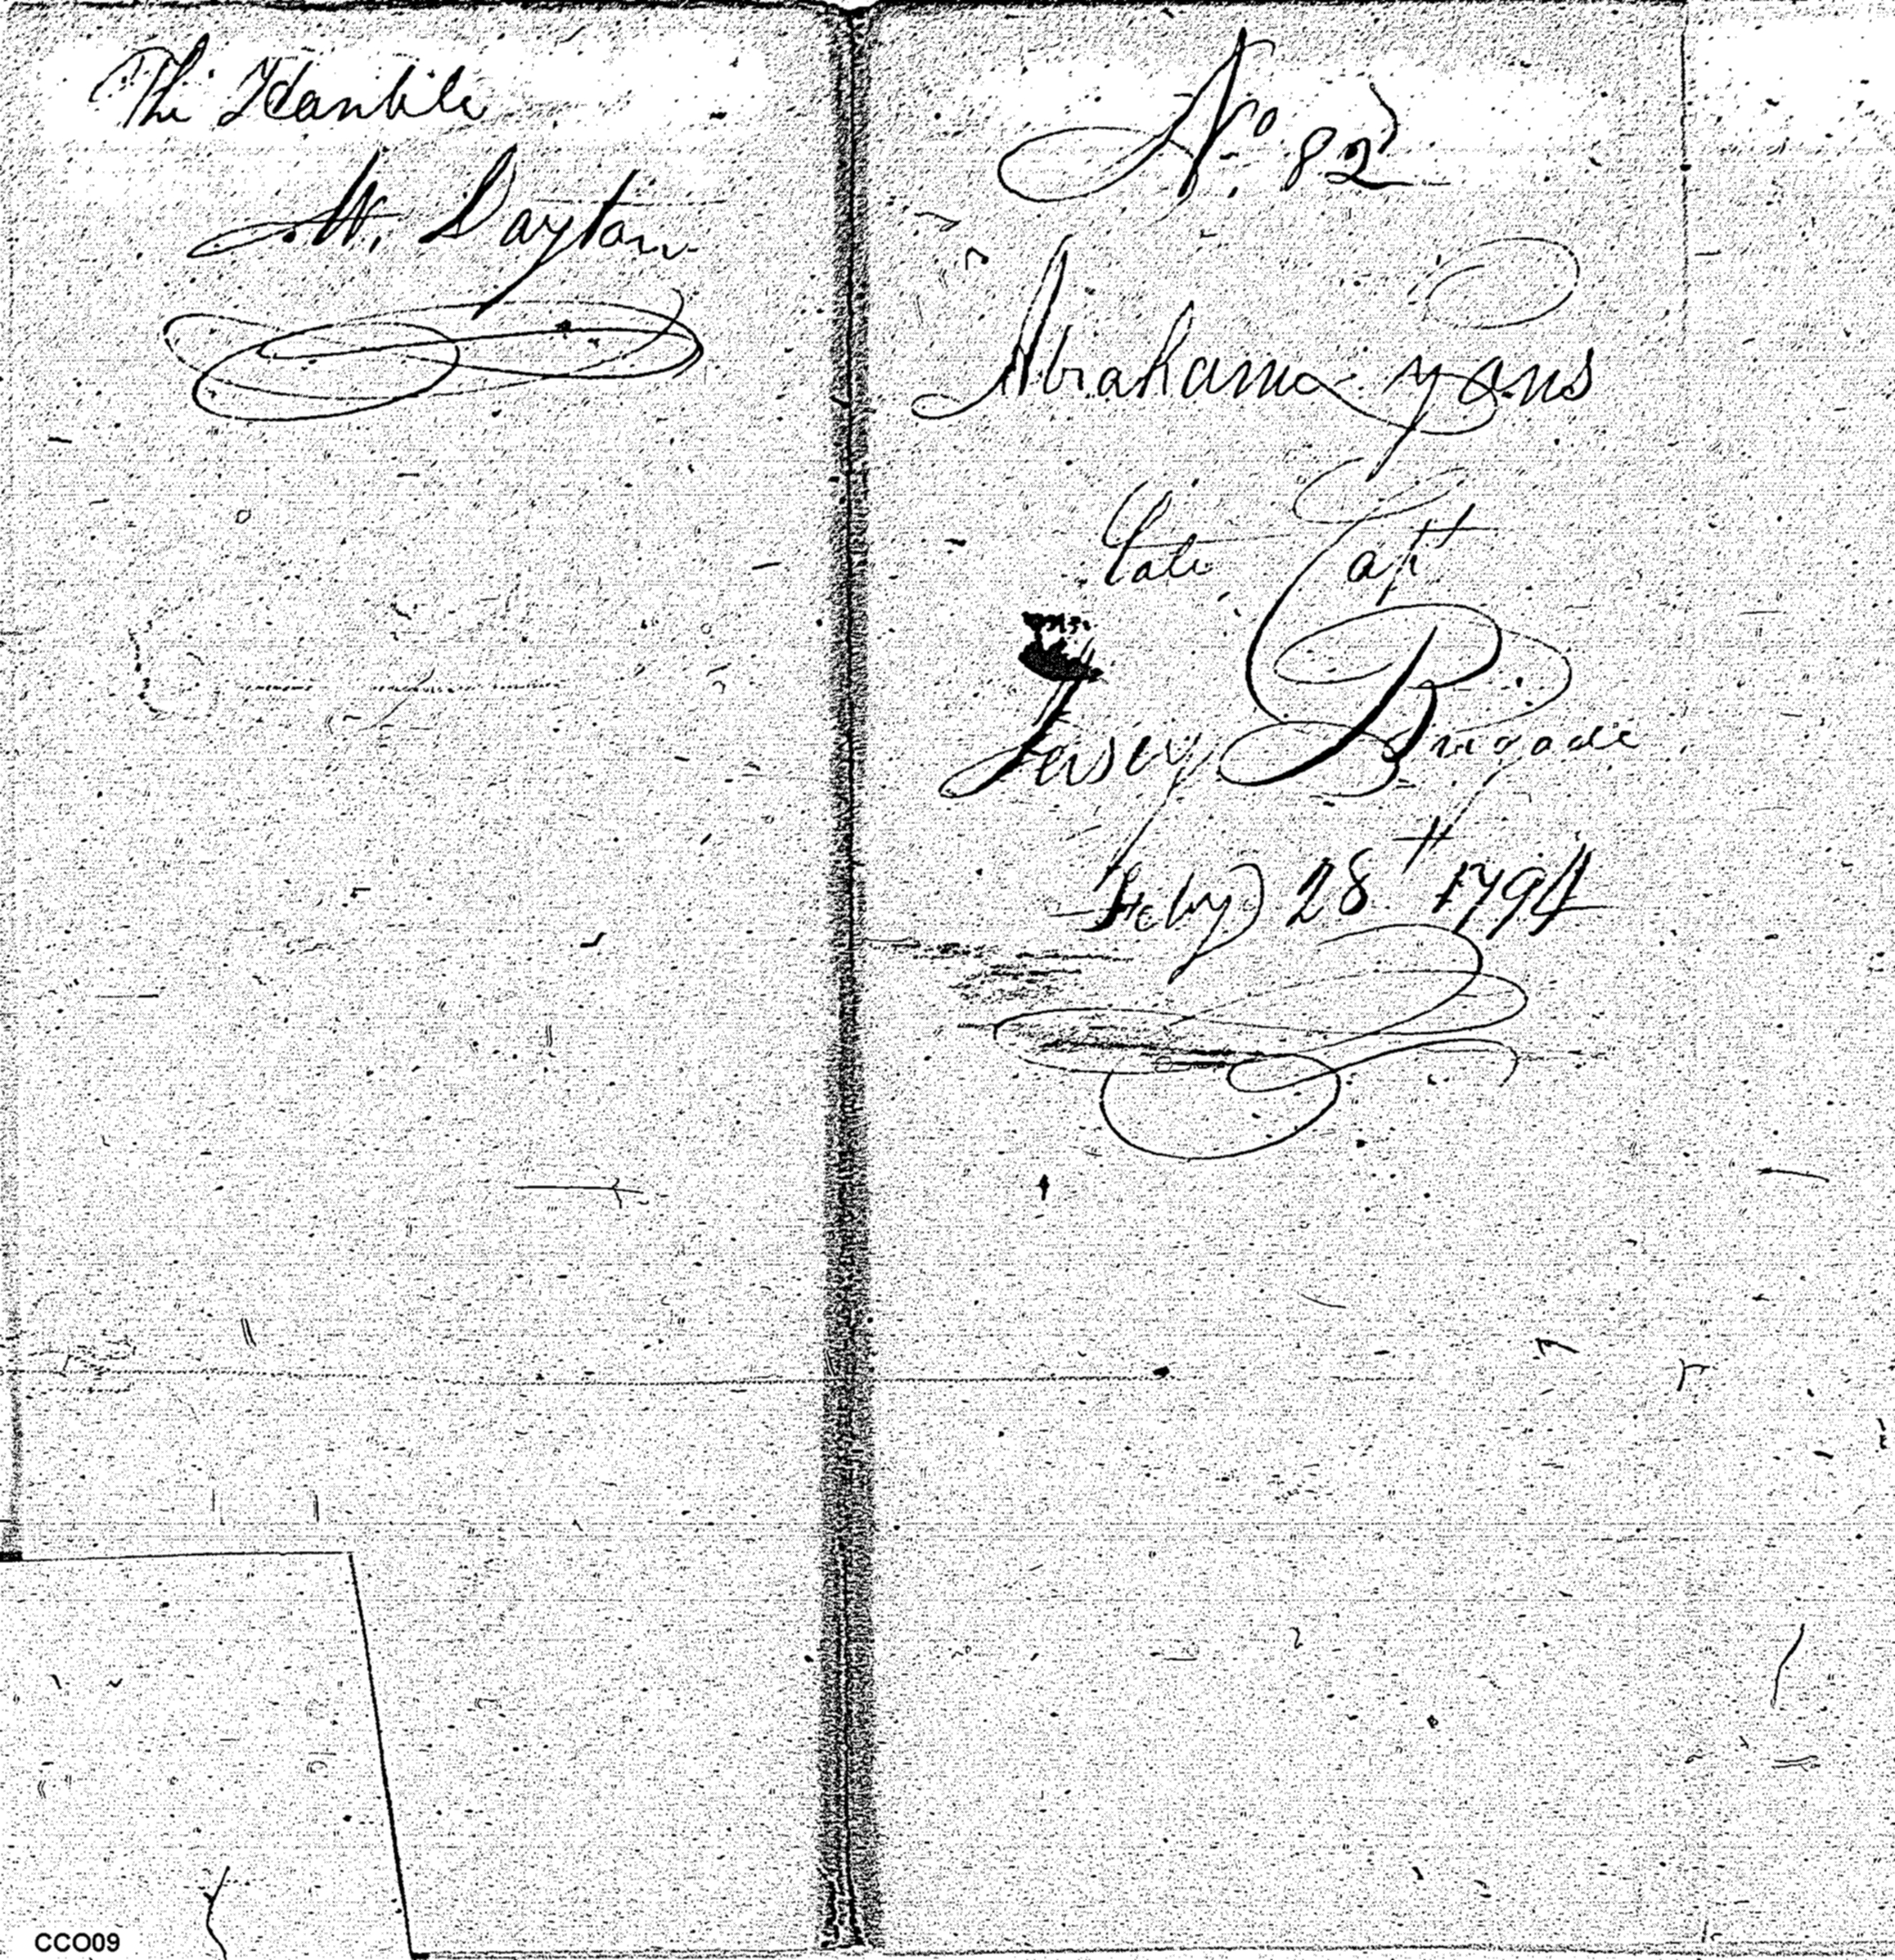 The Honble
Mr. Dayton
No. 82
Abraham Lyons
Late Capt
Jersey Brigade
Feby 28th 1794
CCO09